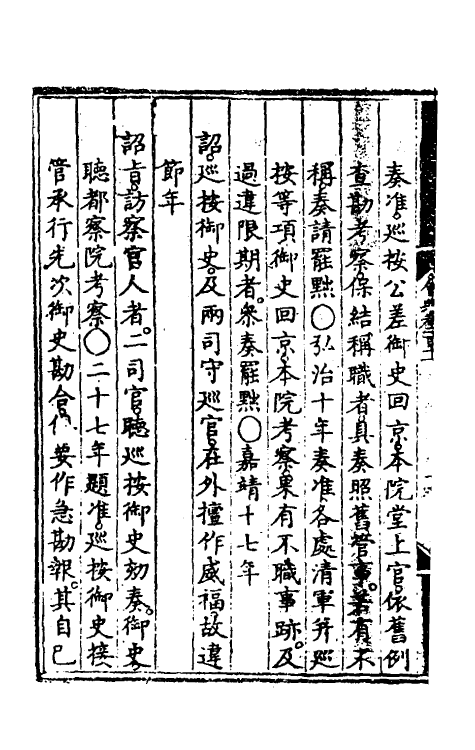 奏准。巡按公差御史回京。本院堂上官。依舊例
查勘考察。保結稱職者。具奏照舊管事。若有不
稱。奏請罷黜〇弘治十年奏准各處清軍并巡
按等項御史回京。本院考察。果有不職事跡。及
過違限期者。參奏罷黜〇嘉靖十七年
詔。巡按御史。及兩司守巡官。在外擅作威福。故違
節年
詔旨。訪察官人者。二司官。聽巡按御史劾奏。御史
聽都察院考察〇二十七年題准。巡按御史接
管承行先次御史勘合。要作急勘報。其自己